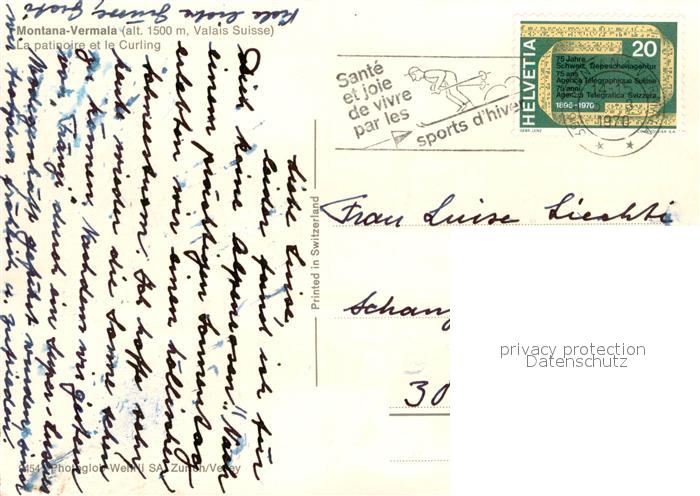 Montana-Vermala (alt. 1500 m, Valais Suisse)
La patinoire et le Curling
Santé
et joie
de vivre
par les
sports d'hiver
HELVETIA
20
75 Jahre
Schweiz. Depeschenagentur
75 ans
Agence Télégraphique Suisse
75 anni
Agenzia Telegrafica Svizzera
1895-1970
1970
Printed in Switzerland
Frau Luise Liechti
Schanz
30
privacy protection
Datenschutz
Liebe Luise,
leider fand ich für
Dich keine Alpenrosen! Nach
einem prächtigen Sonnentag
erlebten wir einen
Schneesturm. Ich hoffe sehr
bald wieder die Sonne sehen
zu können. Nachdem wir gestern
von Frängi durch im Super-
geführt wurden, sind
wir fröhlich u. zufrieden.
Viele liebe Grüsse,
Photoglob-Wehrli SA, Zürich/Vevey